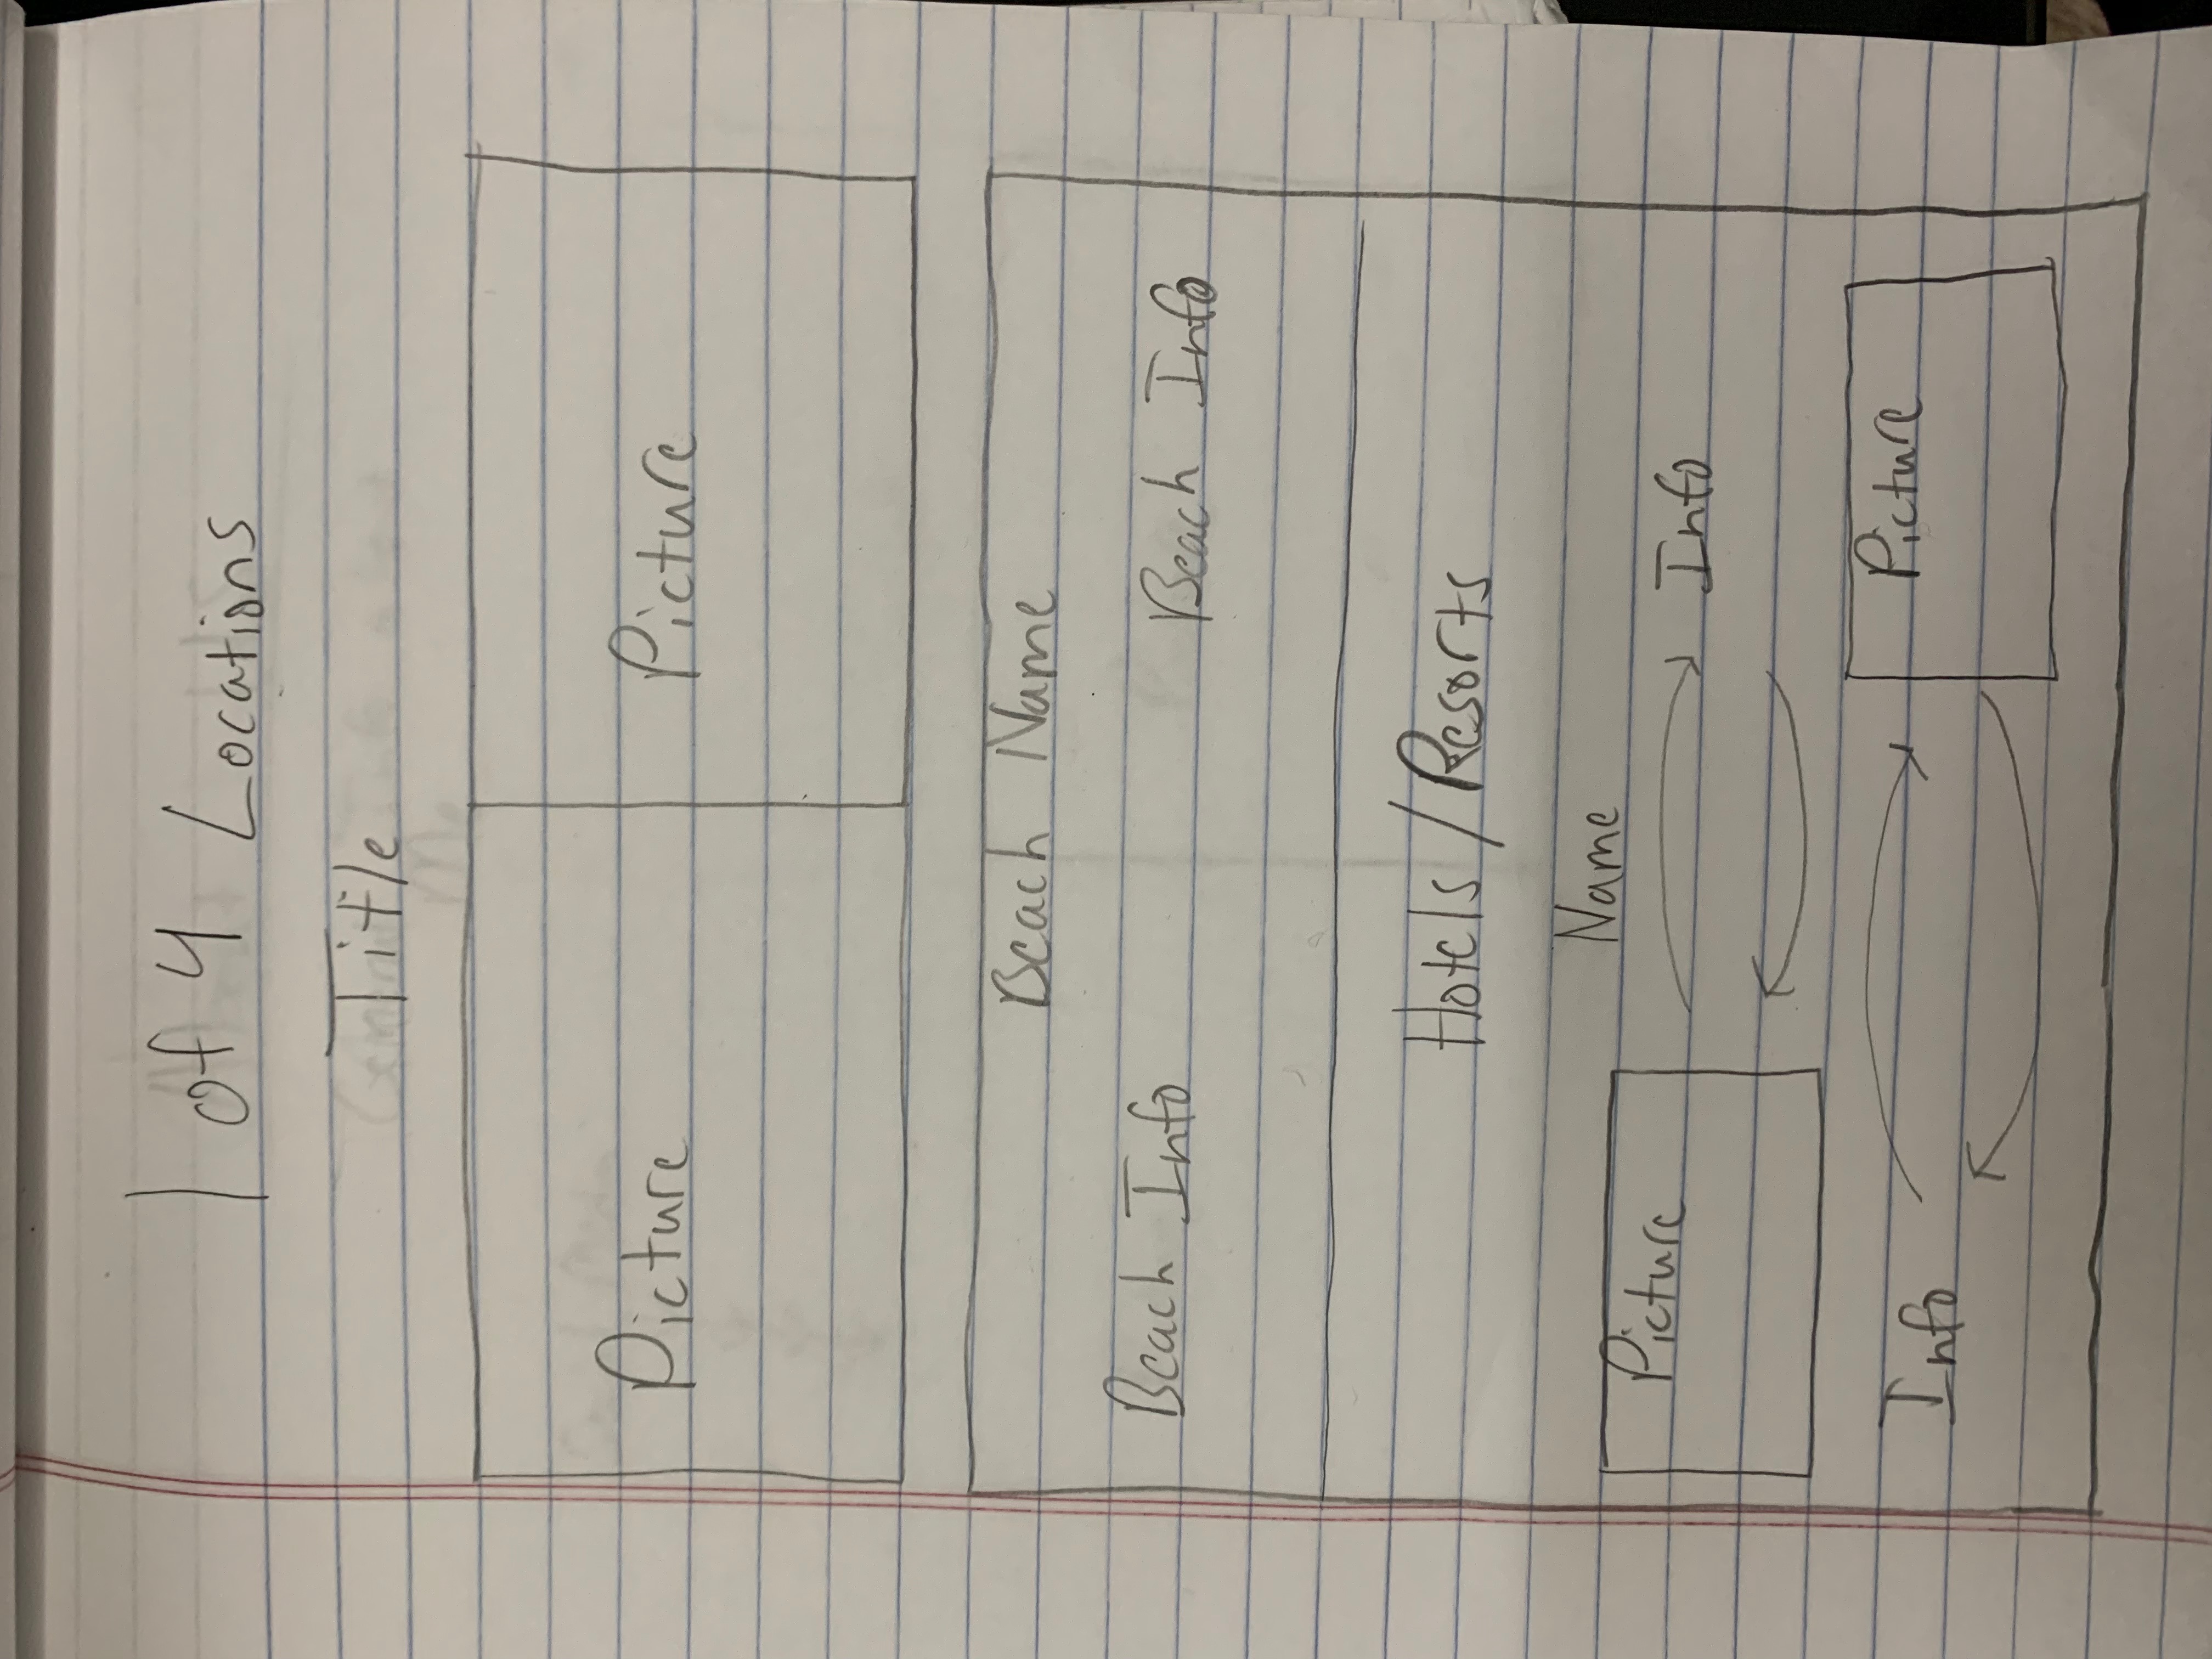 1 of 4 Locations
Title
Picture Picture
Beach Name
Beach Info Beach Info
Hotels / Resorts
Name
Picture Info
Info Picture